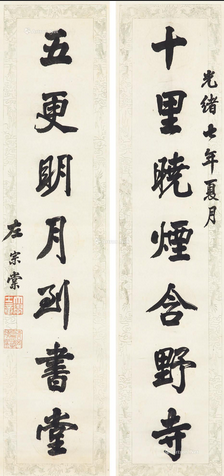 光緒七年夏月
十里曉煙含野寺
五更明月到書堂
左宗棠